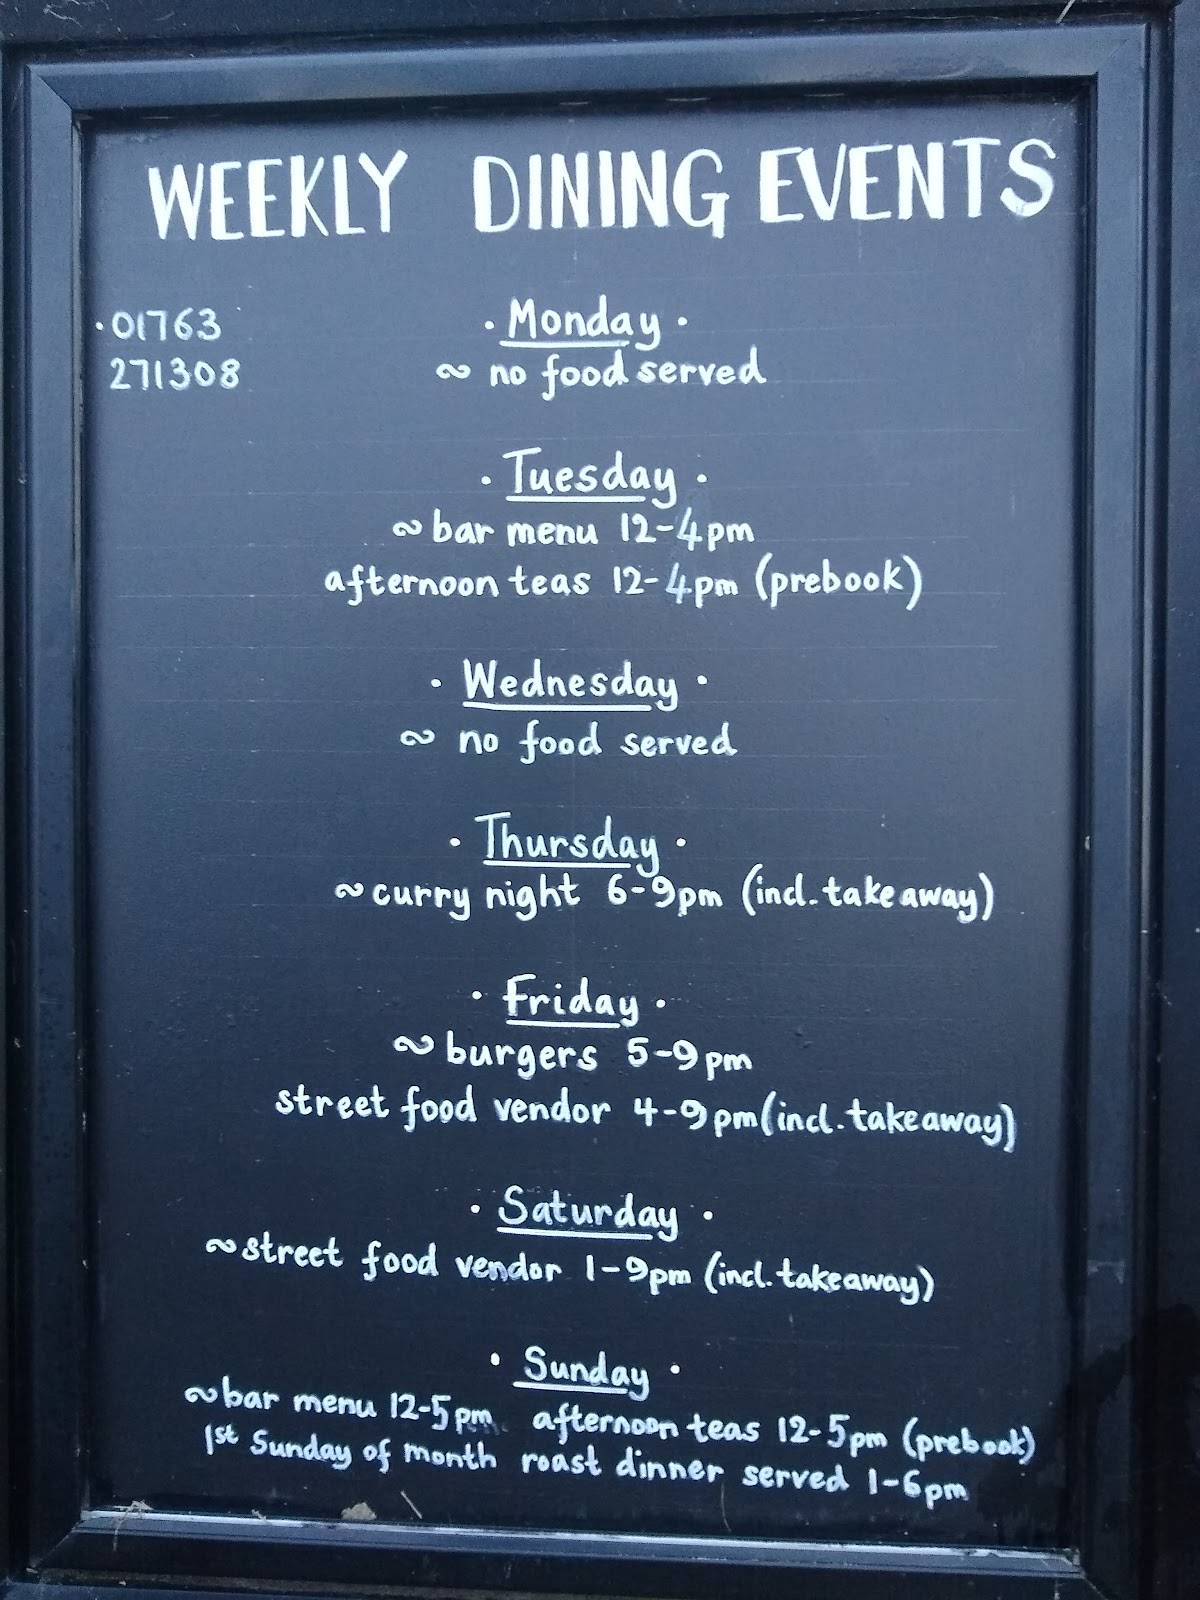 WEEKLY DINING EVENTS
·01763
271308
· Monday ·
~ no food served
· Tuesday ·
~ bar menu 12-4pm
afternoon teas 12-4pm (prebook)
· Wednesday ·
~ no food served
· Thursday ·
~ curry night 6-9pm (incl. takeaway)
· Friday ·
~ burgers 5-9pm
street food vendor 4-9pm (incl. takeaway)
· Saturday ·
~ street food vendor 1-9pm (incl. takeaway)
· Sunday ·
~ bar menu 12-5pm afternoon teas 12-5pm (prebook)
1st Sunday of month roast dinner served 1-6pm